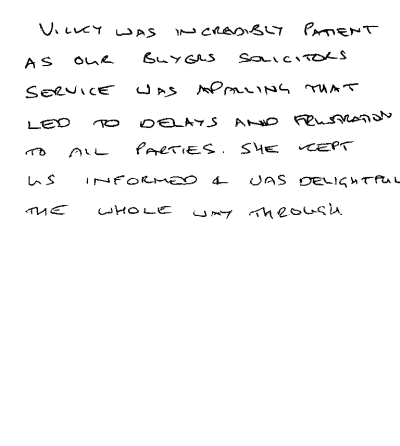 VICKY WAS INCREDIBLY PATIENT
AS OUR BUYERS SOLICITORS
SERVICE WAS APALLING THAT
LED TO DELAYS AND FRUSTRATION
TO ALL PARTIES. SHE KEPT
US INFORMED & WAS DELIGHTFUL
THE WHOLE WAY THROUGH